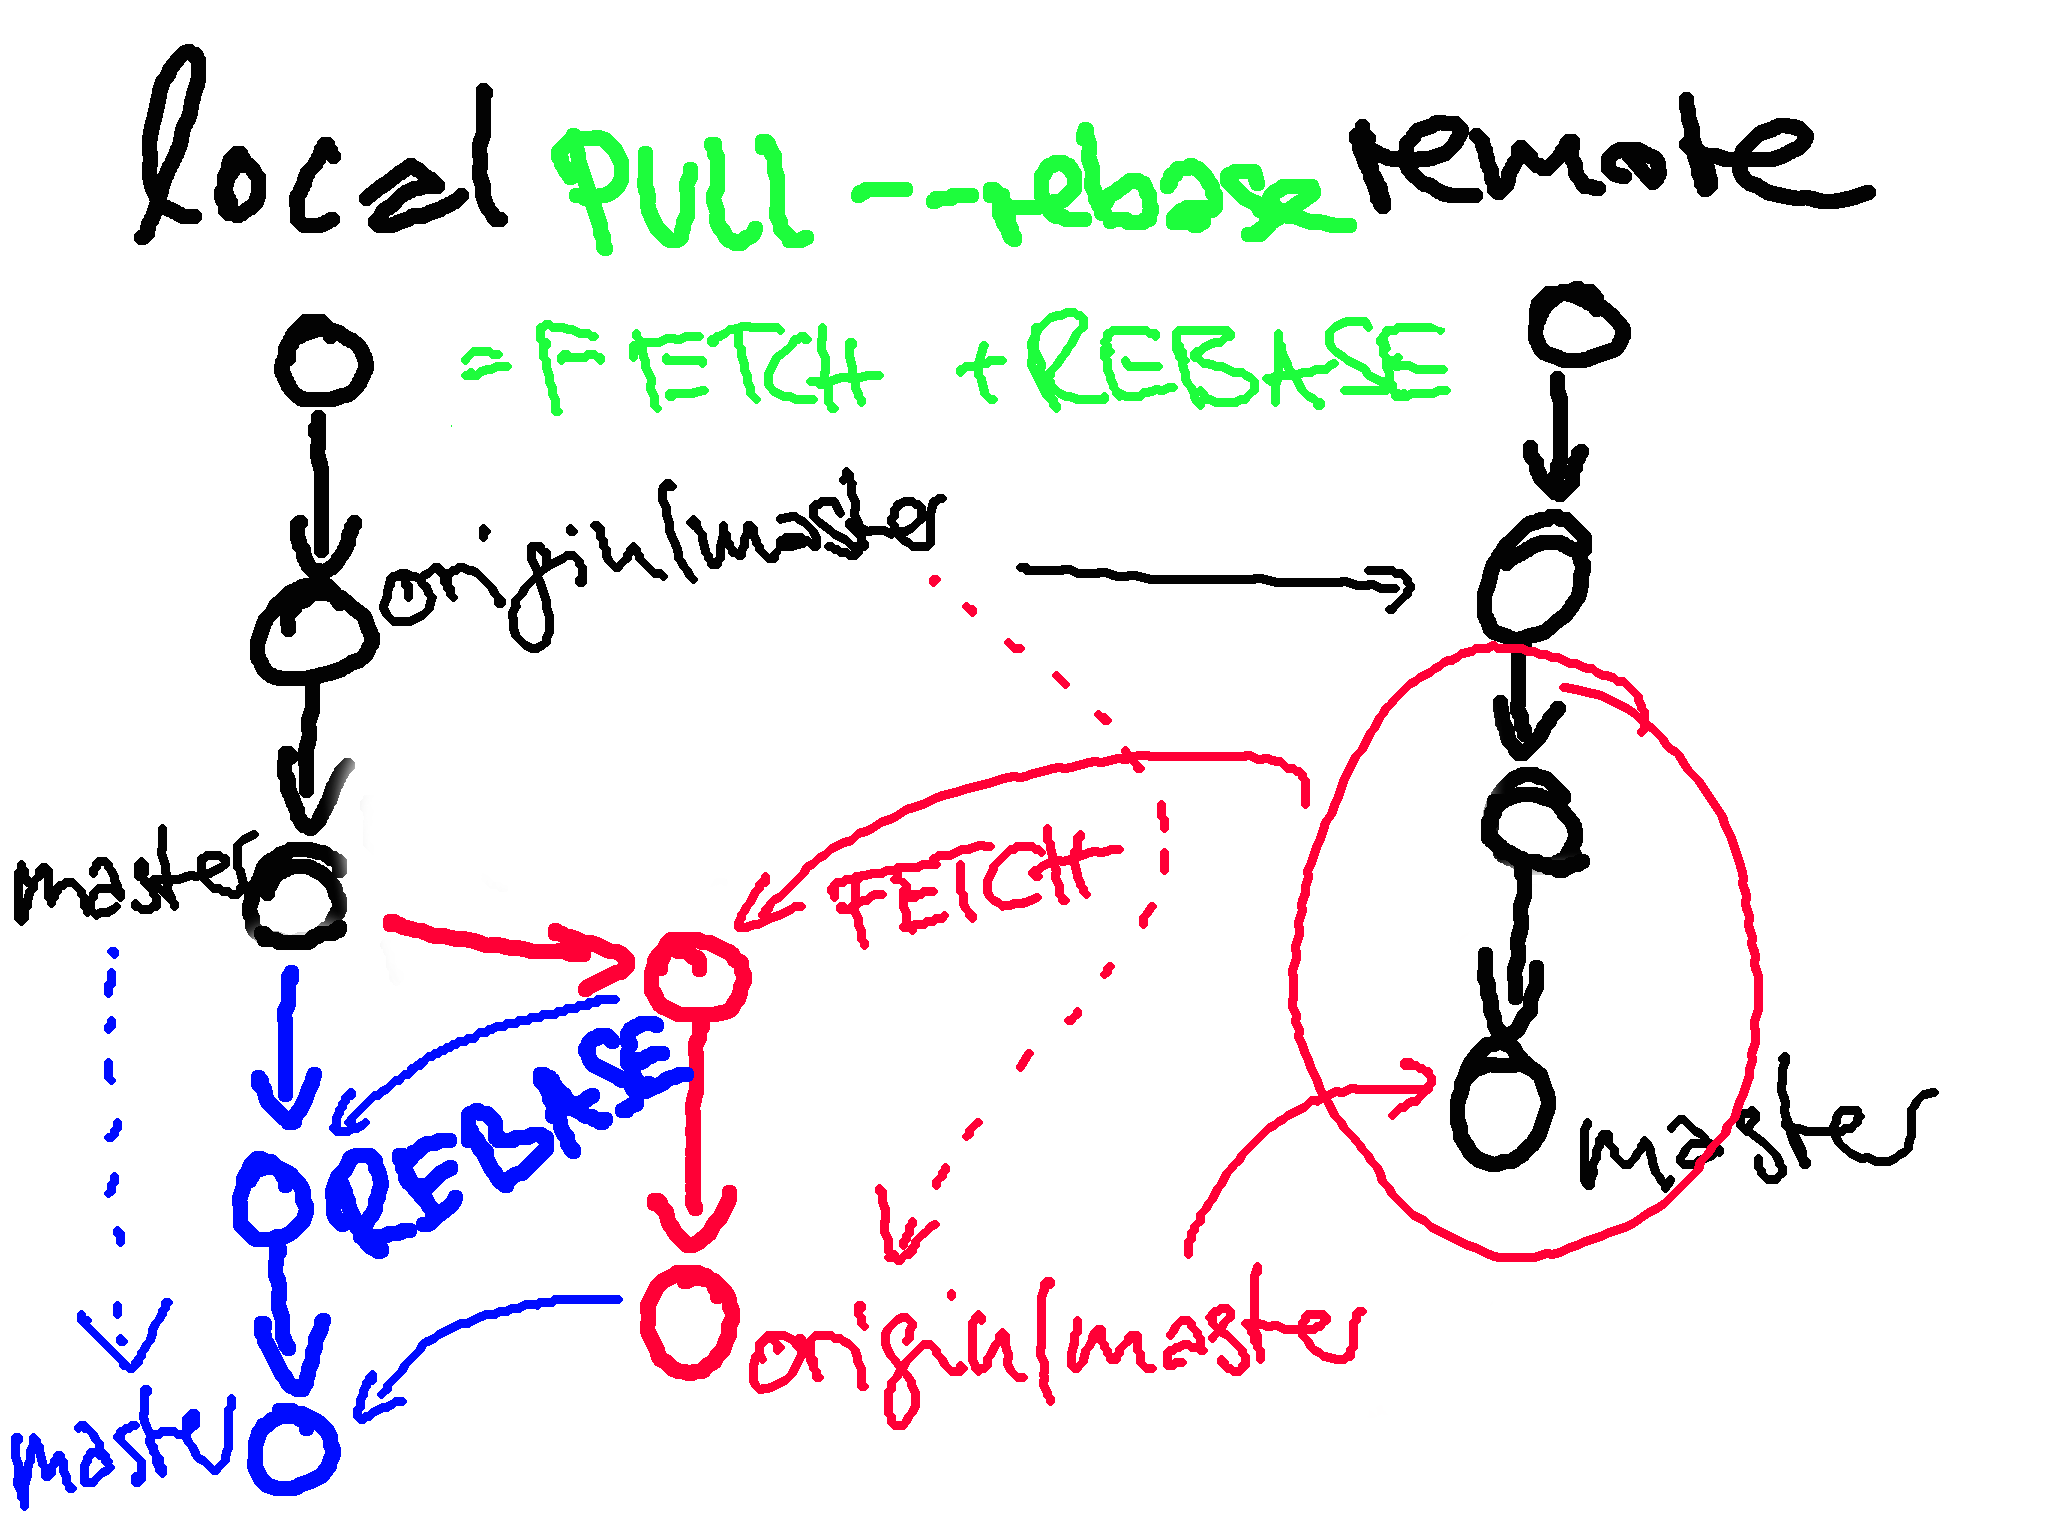 local PULL --rebase remote
= FETCH + REBASE
origin/master
master
FETCH
REBASE
master
origin/master
master